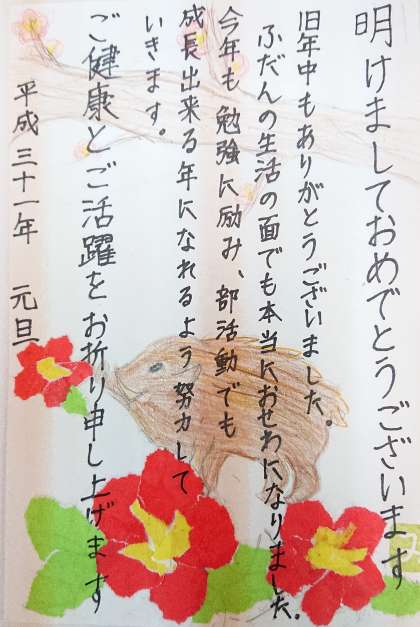 明けましておめでとうございます
旧年中もありがとうございました。
ふだんの生活の面でも本当におせわになりました。
今年も勉強に励み、部活動でも
成長出来る年になれるよう努力して
いきます。
ご健康とご活躍をお祈り申し上げます
平成三十一年 元旦